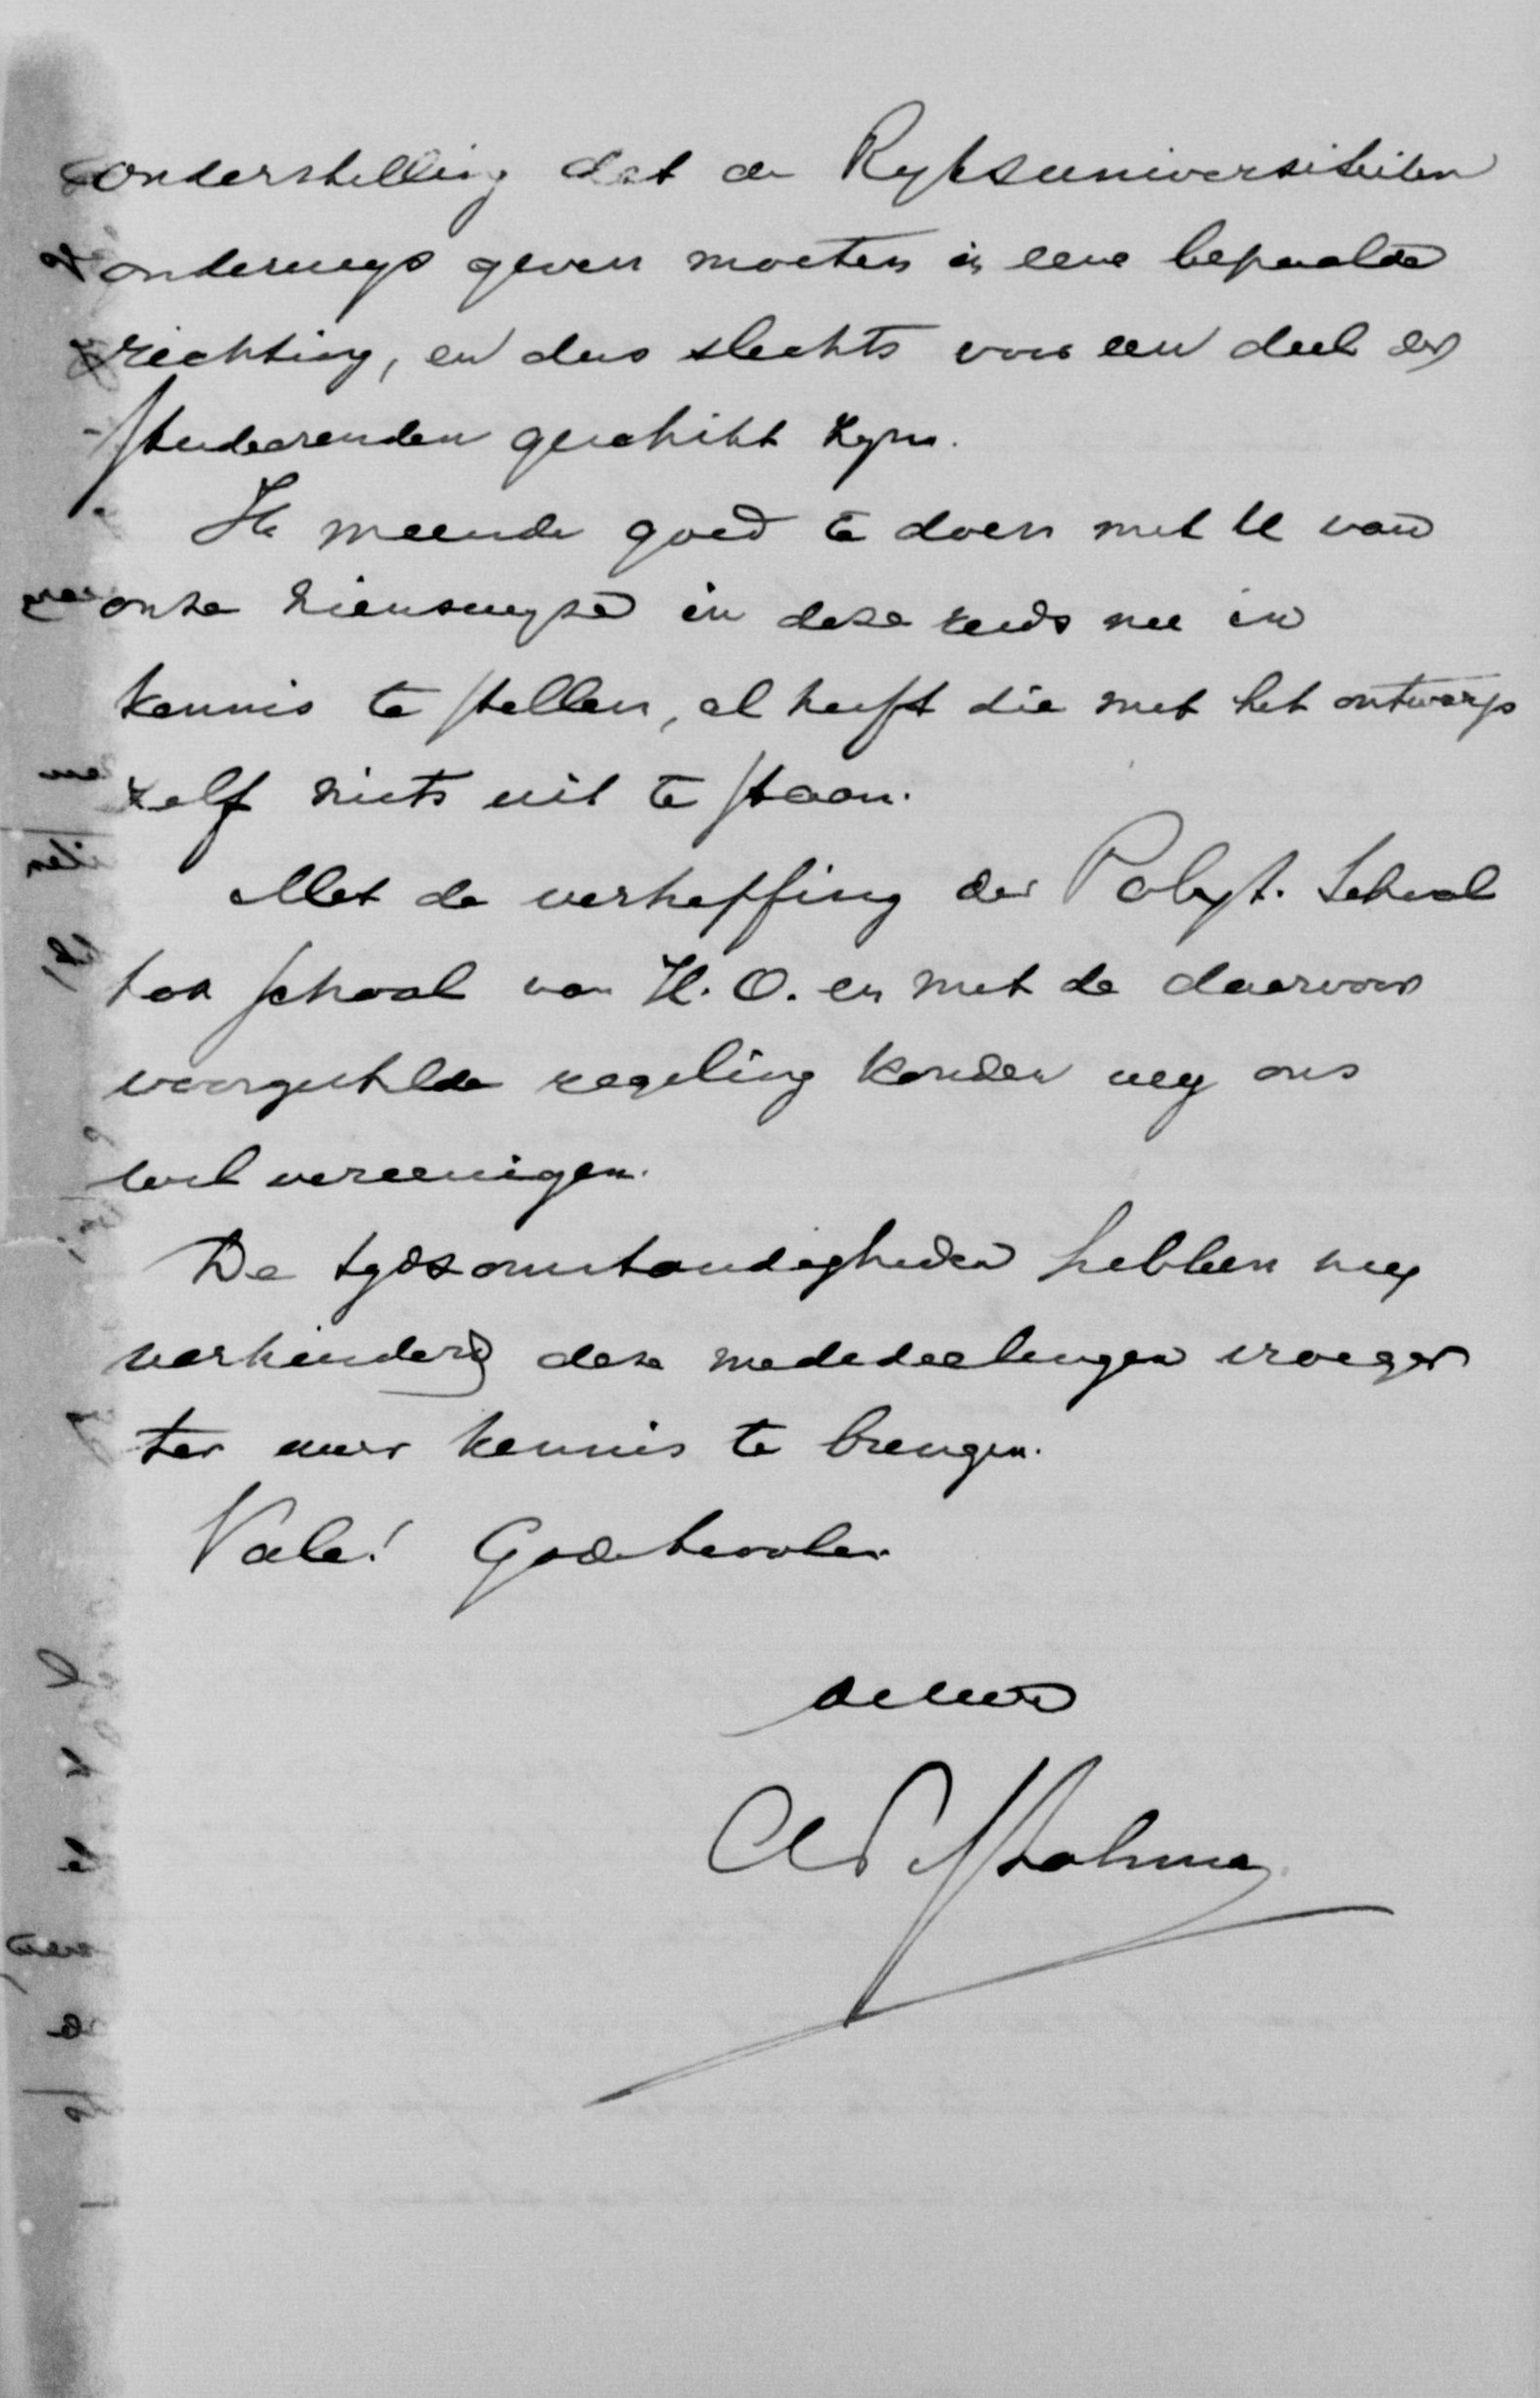 onderstelling dat de Ryksuniversiteiten
onderwys geven moeten in eene bepaalde
richting, en dus slechts voor een deel der
studeerenden geschikt zyn.
Ik meende goed te doen met U van
onze zienswyze in deze reeds nu in
kennis te stellen, al heeft die met het ontwerp
zelf niets uit te staan.
Met de verheffing der Polyt. School
tot school van H. O. en met de daarvoor
voorgestelde regeling konden wy ons
wel vereenigen.
De tydsomstandigheden hebben my
verhinderd deze mededeelingen vroeger
ter uwer kennis te brengen.
Vale! Gode bevolen